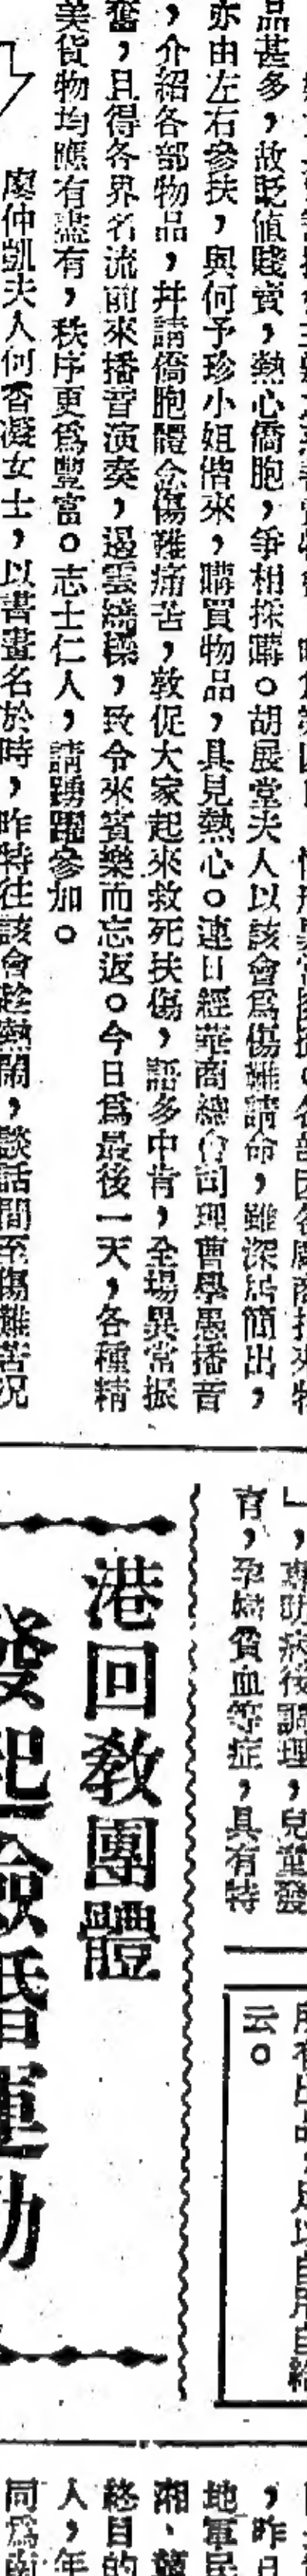 品甚多，故貶值賤賣，熱心僑胞，爭相採購。胡展堂夫人以該會爲傷難請命，雖深居簡出，
亦由左右參扶，與何予珍小姐偕來，購買物品，具見熱心。連日經華商總會司理曹學愚播音
，介紹各部物品，幷請僑胞體念傷難痛苦，敦促大家起來救死扶傷，語多中肯，全場異常振
奮，且得各界名流前來播音演奏，遏雲繞樑，致令來賓樂而忘返。今日爲最後一天，各種精
美貨物均應有盡有，秩序更爲豐富。志士仁人，請踴躍參加。
廖仲凱夫人何香凝女士，以書畫名於時，昨特往該會趁熱鬧，談話間至傷難苦况
」，專助病後調理，兒童發
育，孕婦貧血等症，具有特
所有出品，足以自用自給
云。
港回敎團體
發起 運動
，昨日
地軍民
湘、
終目的
人，年
同爲